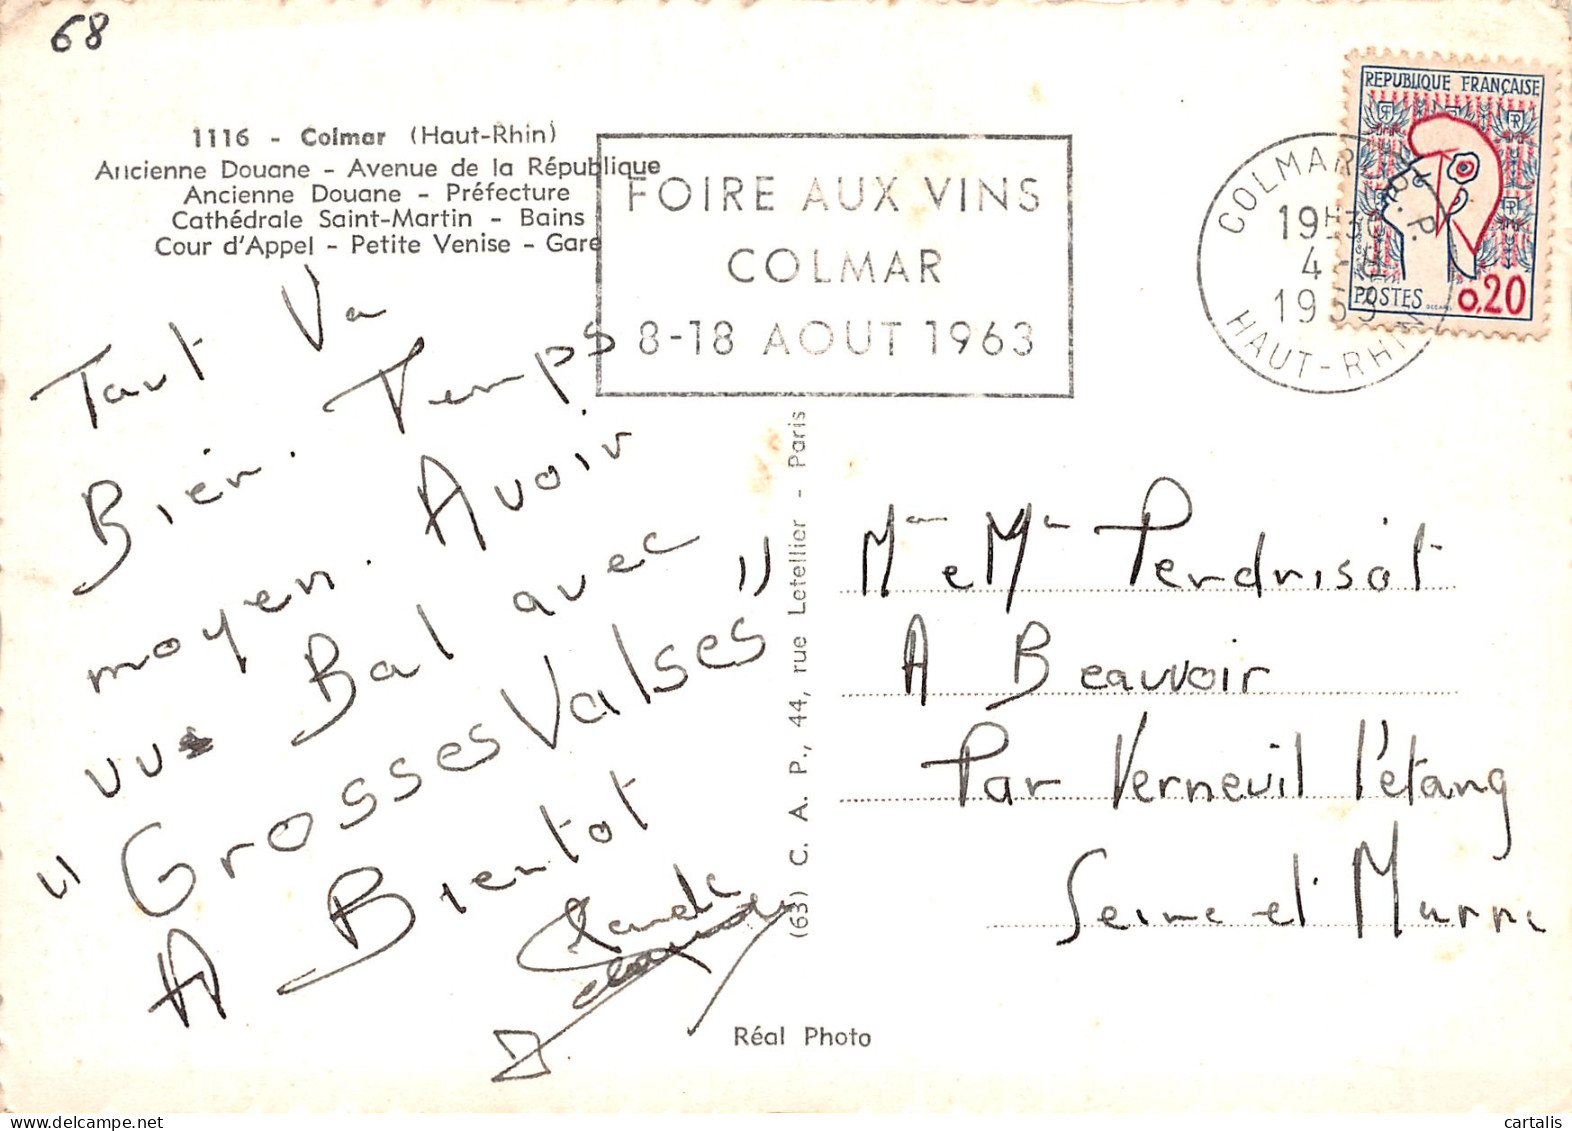 68
1116 - Colmar (Haut-Rhin)
Ancienne Douane - Avenue de la République
Ancienne Douane - Préfecture
Cathédrale Saint-Martin - Bains
Cour d'Appel - Petite Venise - Gare
FOIRE AUX VINS
COLMAR
8-18 AOUT 1963
COLMAR R.P.
19H30
4-
HAUT-RHIN
REPUBLIQUE FRANÇAISE
POSTES 0,20
Tout Va
Bien. Temps
moyen. Avoir
vu Bal avec
"Grosses Valses"
A Bientot
Réal Photo
(63) C. A. P., 44, rue Letellier - Paris
Mme e Mr Perdrisot
A Beauvoir
Par Verneuil l'étang
Seine et Marne
cartalis